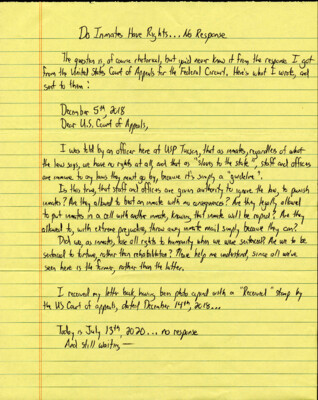 Do Inmates Have Rights... No Response
The question is, of course rhetorical, but you'd never know it from the response I got
from the United States Court of Appeals for the Federal Circuit. Here's what I wrote, and
sent to them:
December 5th, 2018
Dear U.S. Court of Appeals,
I was told by an officer here at USP Tucson, that as inmates, regardless of what
the law says, we have no rights at all, and that as "slaves to the state", staff and officers
are immune to any laws they must go by, because it's simply a "guideline".
Is this true, that staff and officers are given authority to ignore the law, to punish
inmates? Are they allowed to beat an inmate with no consequences? Are they legally allowed
to put inmates in a cell with another inmate, knowing that inmate will be raped? Are they
allowed to, with extreme prejudice, throw away inmate mail simply because they can?
Did we, as inmates, lose all rights to humanity when we were sentenced? Are we to be
sentenced to torture, rather than rehabilitation? Please help me understand, since all we've
seen here is the former, rather than the latter.
I received my letter back, having been photo copied with a "Received" stamp by
the US Court of appeals, dated December 14th, 2018...
Today is July 13th, 2020... no response
And still waiting—